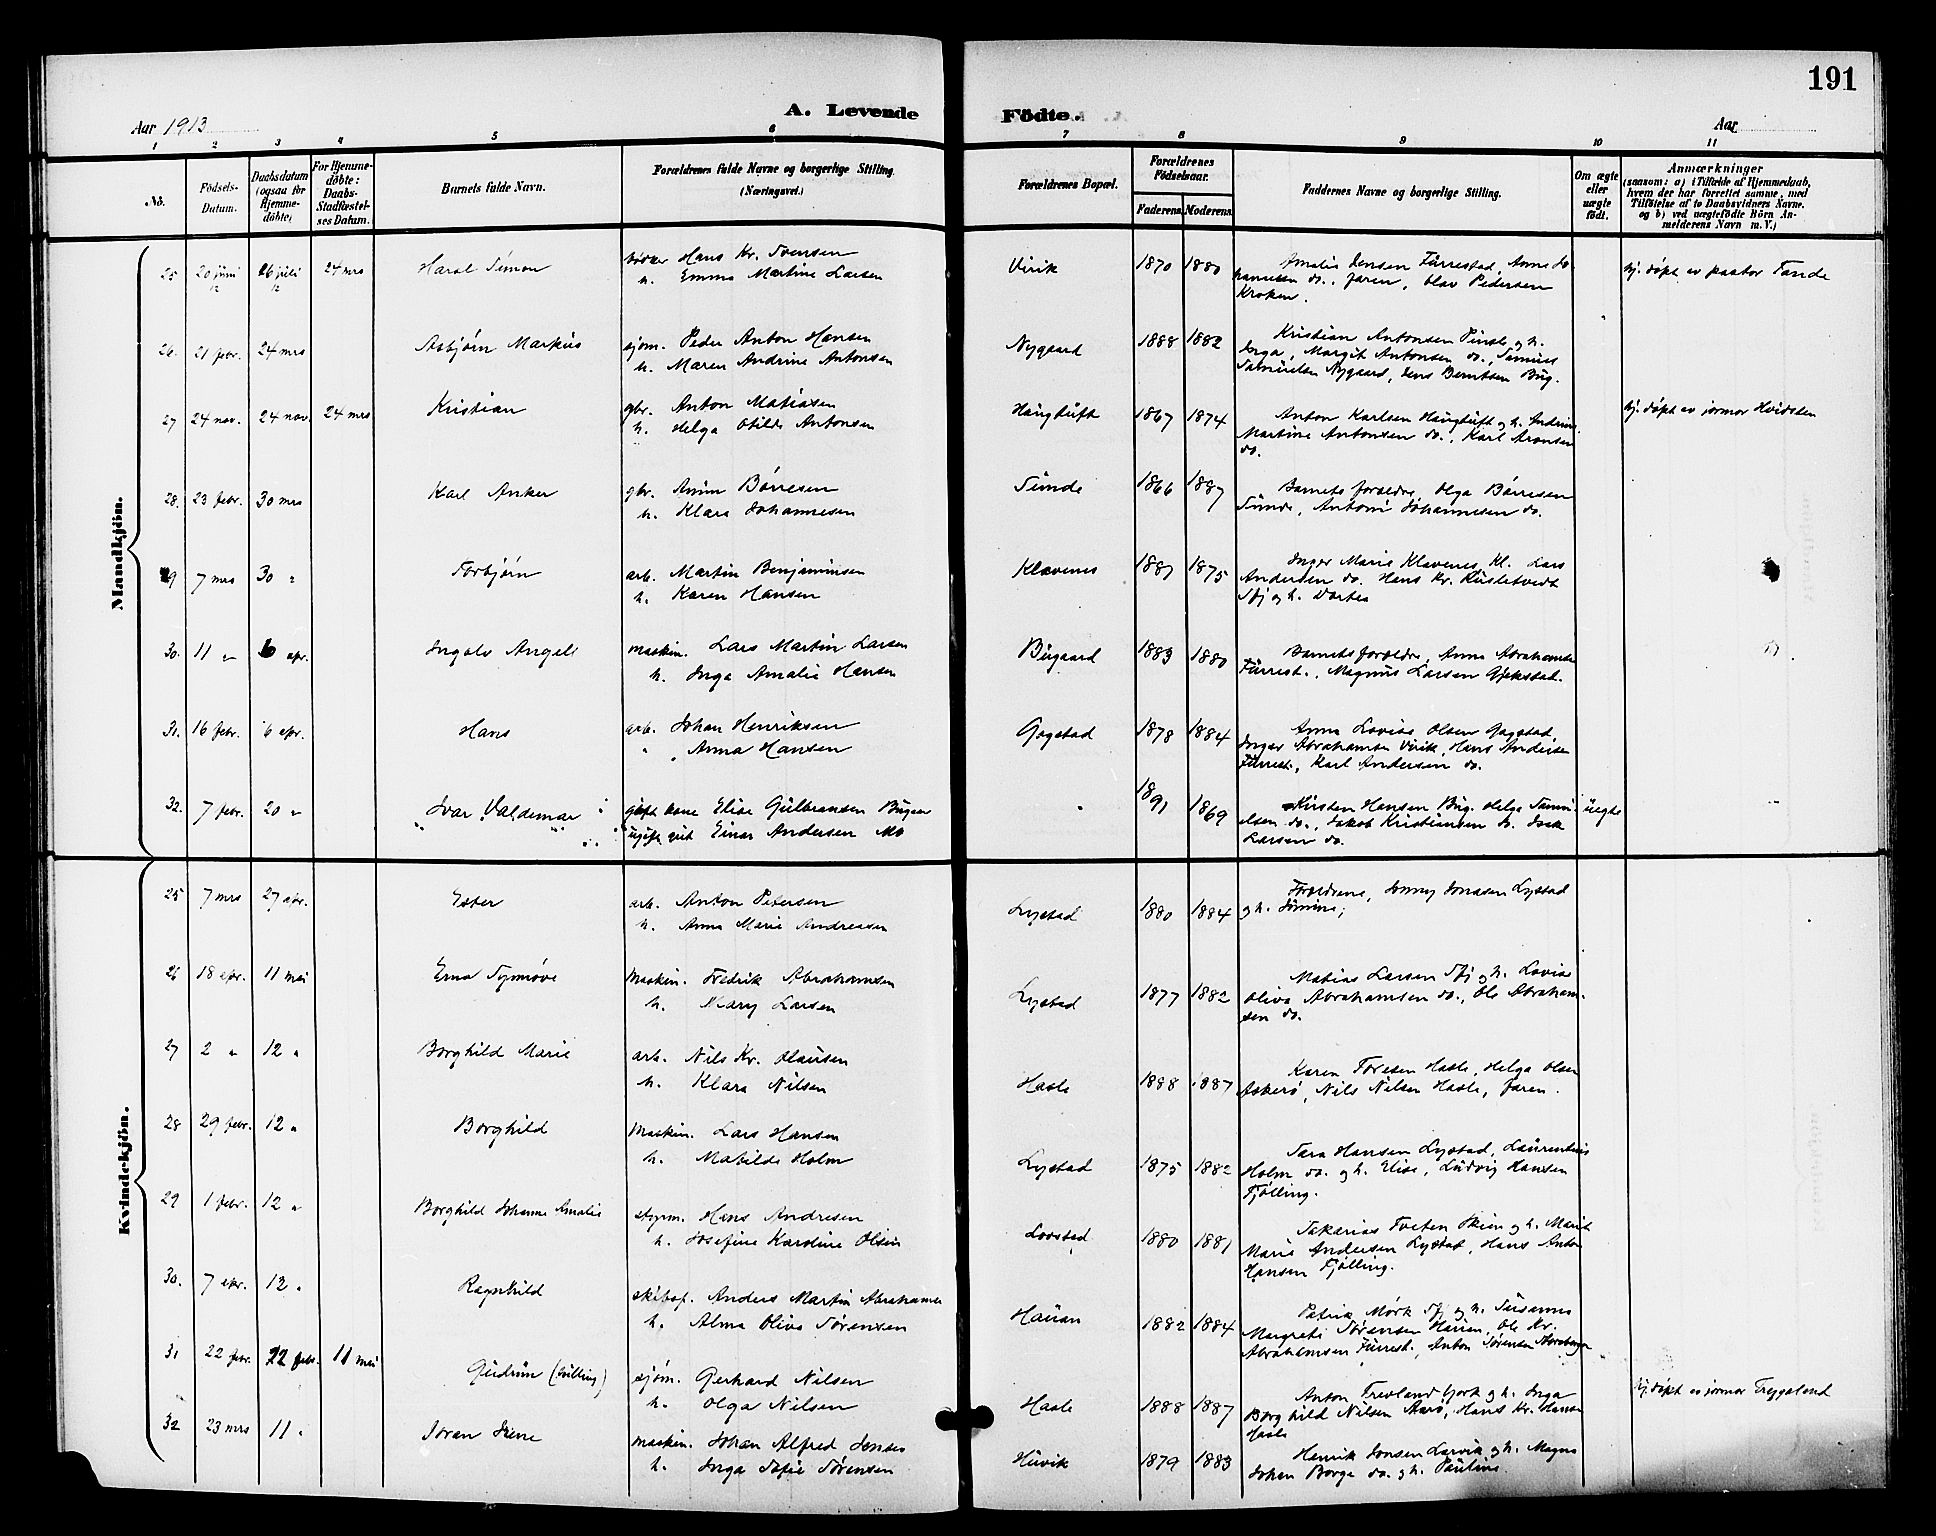 191
A. Levende Födte.
Aar 1913
Aar
1 2 3 4 5 6 7 8 9 10 11
No.
Födsels-Datum.
Daabsdatum (ogsaa for Hjemmedöbte)
For Hjemmedöbte: Daabs-Stadfæstelses Datum.
Barnets fulde Navn.
Forældrenes fulde Navne og borgerlige Stilling. (Næringsvei.)
Forældrenes Bopæl.
Forældrenes Födselsaar.
Faderens Moderens
Faddernes Navne og borgerlige Stilling.
Om ægte eller uægte födt.
Anmærkninger
(saasom: a) i Tilfælde af Hjemmedaab, hvem der har forrettet samme, med Tilföielse af to Daabsvidners Navne. og b) ved uægtefödte Börn Anmelderens Navn m. V.)
Mandkjön.
25 20 juni 12 26 juli 12 24 mrs Haral Simon
Hans Kr. Svensen
h. Emma Martine Larsen
Virik 1870 1880
Amalie Jensen Fürrestad, Anne Johannesen do., faren, Olav Pedersen Kroken.
hj. döpt av pastor Tande
26. 21 febr. 24 mrs Asbjörn Markus
sjöm. Peder Anton Hansen
h. Maren Andrine Antonsen
Nygaard 1888 1882
Kristian Antonsen Pinsl. og h. Inga, Margit Antonsen do., Samuel Samuelsen Nygaard, Jens Berntsen Bug.
27 24 nov. 24 nov. 24 mrs Kristian
gbr. Anton Matiasen
h. Helga Otilde Antonsen
Haugtuft 1867 1874
Anton Karlsen Haugtuft og h. Andrine Martine Antonsen do., Karl Aronsen do.
hj. döpt av jormor Hvidsten
28. 23 febr. 30 mrs Karl Anker
gbr. Anton Börresen
h. Klara Johannesen
Sunde 1866 1887
Barnets forældre, Olga Börresen Sunde, Antoni Johannesen do.
29 7 mrs 30 " Torbjörn
arb. Martin Benjaminsen
h. Karen Hansen
Klavenes 1881 1875
Inger Marie Klavenes, Kl. Lars Andersen do. Hans Kr. Rusletvedt Sfj og h. Dortea
30. 11 " 6 apr. Ingolv Angell
maskin. Lars Martin Larsen
h. Inga Amalie Hansen
Bugaard 1883 1880
Barnets forældre, Anne Abrahamsen Fürrest., Magnus Larsen Gjekstad.
31. 16 febr. 6 apr. Hans
arb. Johan Henriksen
" Anna Hansen
Gogstad 1878 1884
Anna Lovise Olsen Gogstad, Inger Abrahamsen Virik, Hans Andersen Fürrest., Karl Andersen do.
32. 7 febr. 20 " Ivar Valdemar
gift kone Elise Gulbransen Bugaar
ugift gut Einar Andersen Mo
" 1891 1869
Kirsten Hansen Bug. Helga Samuelsen do., Jakob Kristiansen do. Isak Larsen do.
uegte
Kvindekjön.
25 7 mrs 27 apr. Ester
arb. Anton Petersen
h. Anna Marie Andreasen
Lystad 1880 1884
Forældrene, Jonny Jonasen Lystad og h.
26 18 apr. 11 mai Erna Synnöve
Maskin. Fredrik Abrahamsen
h. Mary Larsen
Lystad 1877 1882
Matias Larsen Sfj og h. Lovise Oliva Abrahamsen do., Ole Abrahamsen do.
27 2 " 12 " Borghild Marie
arb. Nils Kr. Olausen
h. Klara Nilsen
Hasle 1888 1887
Karen Toresen Hasle, Helga Olsen Askerö, Nils Nilsen Hasle, faren.
28 29 febr. 12 " Borghild
Maskin. Lars Hansen
h. Matilde Holm
Lystad 1875 1882
Sara Hansen Lystad, Laurentius Holm do. og h. Elise, Ludvig Hansen Fjölling.
29 1 febr. 12 " Borghild Johanne Amalie
styrm. Hans Andresen
h. Josefine Karoline Olsen
Lovstad 1880 1881
Sakarias Tveten Skien og h. Marie Marie Andersen Lystad, Hans Anton Hansen Fjölling.
30. 7 apr. 12 " Ragnhild
skibsf. Anders Martin Abrahamsen
h. Alma Oliva Sörensen
Hauan 1882 1884
Patrik Mörk Sfj og h. Susanne Margrete Sörensen Hauen, Ole Kr. Abrahamsen Fürrest., Anton Sörensen
31 22 febr. 22 febr. 11 mai Gudrun (tvilling)
sjöm. Gerhard Nilsen
h. Olga Nilsen
Hasle 1888 1887
Anton Trevland og h. Inga Borghild Nilsen Aarö, Hans Kr. Hansen Hasle
hj. döpt av jormor Tryggeland
32 23 mrs 11 " Joran Irene
maskin. Johan Alfred Jensen
h. Inga Sofie Sörensen
Huvik 1879 1883
Henrik Jonsen Larvik og h. Magna Johan Borge do. og h. Pauline.